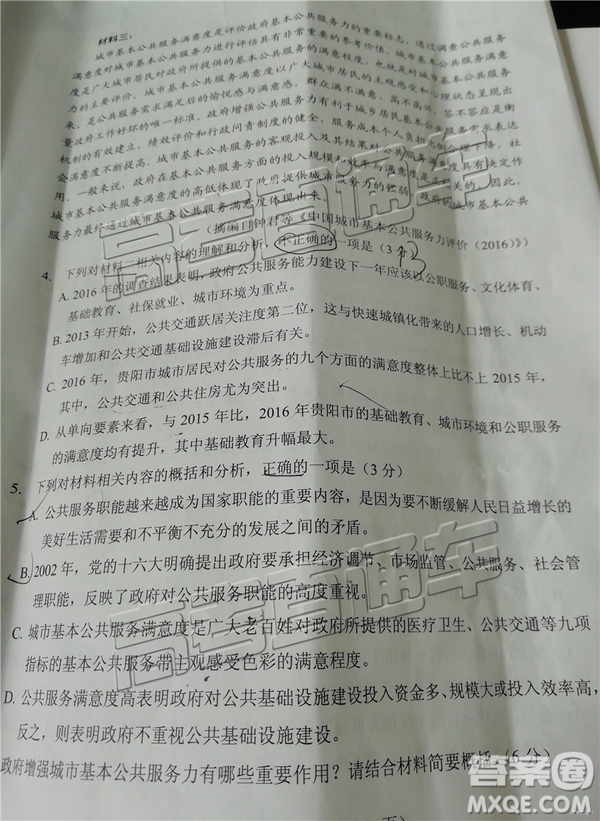 材料三：
城市基本公共服务满意度是评价政府基本公共服务力的重要标志，通过调查公共服务
满意度对城市基本公共服务力进行评估具有非常重要的参考价值。城市基本公共服务满意
度是广大城市居民对政府所提供的基本公共服务的满意程度，也就是对城市基本公共服务
力的主要评价。城市基本公共服务满意度以广大城市居民的主观感受和心理状态呈现出
来，是公共服务需求满足后的愉悦感与满意感。群众满不满意、高不高兴、答不答应是衡
量政府工作好坏的唯一标准。政府增强公共服务力有利于城乡居民基本公共服务需求表达
机制的有效建立、绩效评价和行政问责制度的健全，服务成本个人负担比例合理下降，社
会满意度不断提高。城市基本公共服务的客观投入及其结果对公共服务满意度具有决定作
用，一般来说，政府在基本公共服务方面的投入规模和效率与满意度是
城市基本公共服务满意度的高低体现了政府提供城市 服务力的强弱，政府的城市基本公共
服务力最终通过城市基本公共服务满意度体现出来。
（摘编自钟君等《中国城市基本公共服务力评价（2016）》）
4. 下列对材料二相关内容的理解和分析，不正确的一项是（3分）
A. 2016 年的调查结果表明，政府公共服务能力建设下一年应该以公职服务、文化体育、
基础教育、社保就业、城市环境为重点。
B. 2013 年开始，公共交通跃居关注度第二位，这与快速城镇化带来的人口增长、机动
车增加和公共交通基础设施建设滞后有关。
C. 2016 年，贵阳市城市居民对公共服务的九个方面的满意度整体上比不上 2015 年，
其中，公共交通和公共住房尤为突出。
D. 从单向要素来看，与 2015 年比，2016 年贵阳市的基础教育、城市环境和公职服务
的满意度均有提升，其中基础教育升幅最大。
5. 下列对材料相关内容的概括和分析，正确的一项是（3 分）
A. 公共服务职能越来越成为国家职能的重要内容，是因为要不断缓解人民日益增长的
美好生活需要和不平衡不充分的发展之间的矛盾。
B. 2002 年，党的十六大明确提出政府要承担经济调节、市场监管、公共服务、社会管
理职能，反映了政府对公共服务职能的高度重视。
C. 城市基本公共服务满意度是广大老百姓对政府所提供的医疗卫生、公共交通等九项
指标的基本公共服务带主观感受色彩的满意程度。
D. 公共服务满意度高表明政府对公共基础设施建设投入资金多、规模大或投入效率高，
反之，则表明政府不重视公共基础设施建设。
政府增强城市基本公共服务力有哪些重要作用？请结合材料简要概括（6 分）
高考直通车
高考直通车
答案圈
MXQE.COM